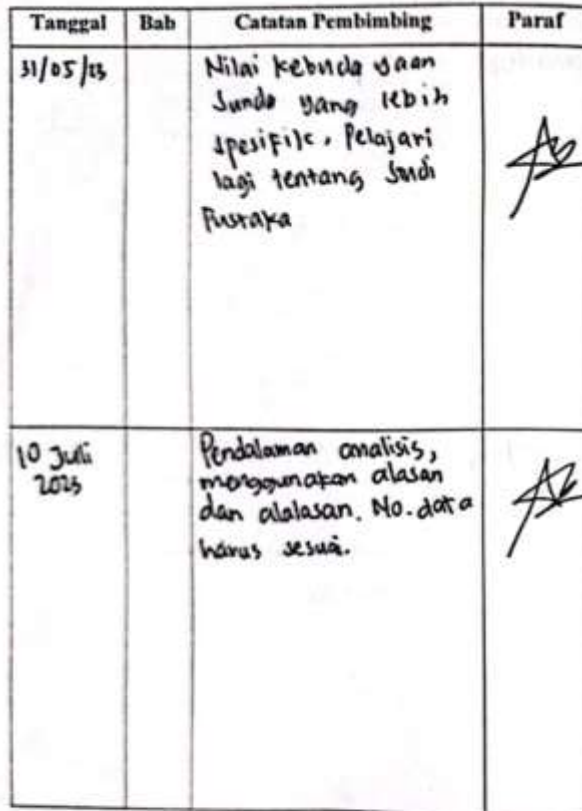 Tanggal Bab Catatan Pembimbing Paraf
31/05/23
Nilai kebudayaan
Sunda yang lebih
spesifik, Pelajari
lagi tentang Studi
Pustaka
10 Juli
2023
Pendalaman analisis,
menggunakan alasan
dan alalasan. No. data
harus sesuai.